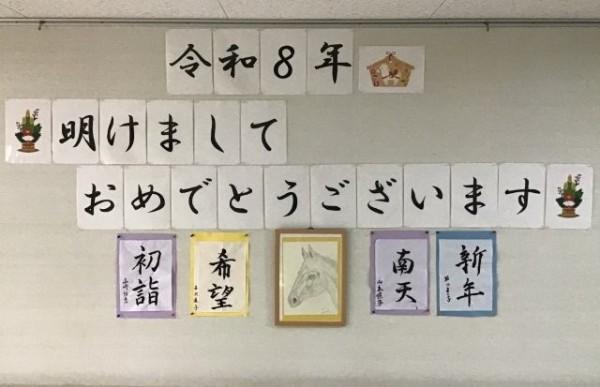 令和8年
明けまして
おめでとうございます
初詣
希望
南天
新年